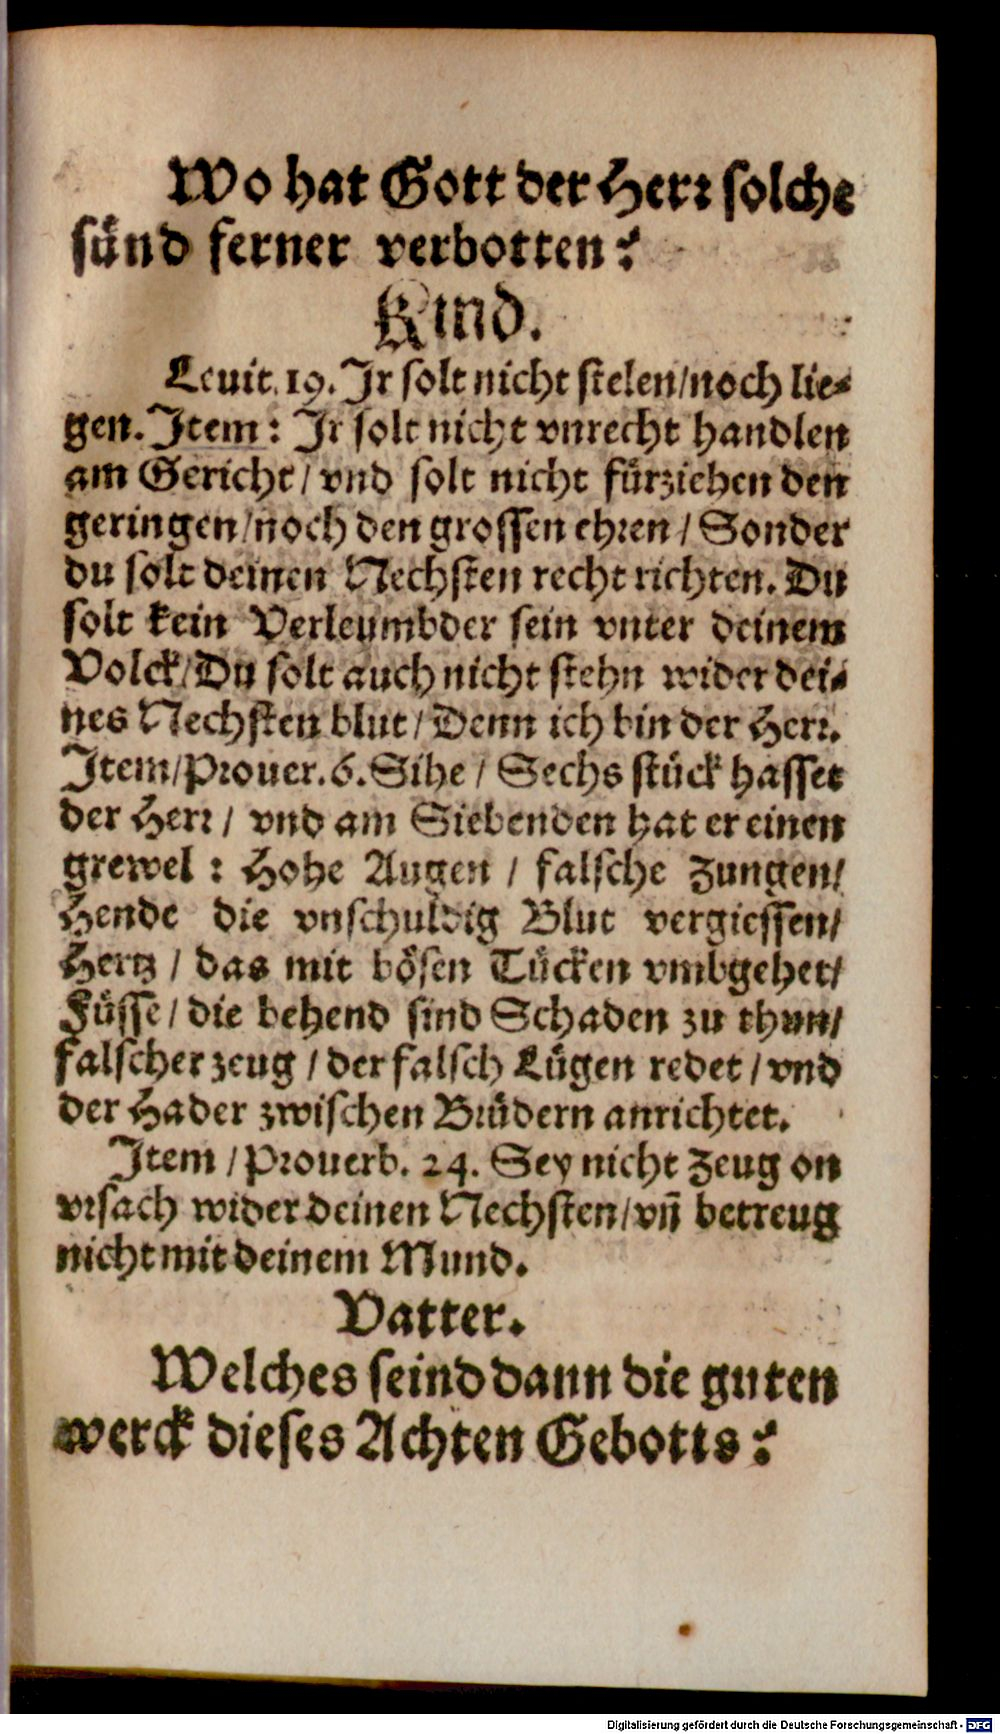 Wo hat Gott der Herr solche
sünd ferner verbotten?
Kind.
Leuit. 19. Jr solt nicht stelen/noch lie-
gen. Item: Ir solt nicht vnrecht handlen
am Gericht/ vnd solt nicht fürziehen den
geringen/noch den grossen ehren / Sonder
du solt deinen Nechsten recht richten. Du
solt kein Verleumbder sein vnter deinem
Volck/Du solt auch nicht stehn wider dei-
nes Nechsten blut/ Denn ich bin der Herr.
Item/Prouer. 6. Sihe / Sechs stück hasset
der Herr / vnd am Siebenden hat er einen
grewel: Hohe Augen / falsche Zungen/
Hende die vnschuldig Blut vergiessen/
Hertz / das mit bösen Tücken vmbgehet/
Füsse/ die behend sind Schaden zu thun/
falscher zeug / der falsch Lügen redet / vnd
der Hader zwischen Brüdern anrichtet.
Item / Prouerb. 24. Sey nicht Zeug on
vrsach wider deinen Nechsten/vñ betreug
nicht mit deinem Mund.
Vatter.
Welches seind dann die guten
werck dieses Achten Gebotts?
Digitalisierung gefördert durch die Deutsche Forschungsgemeinschaft - DFG